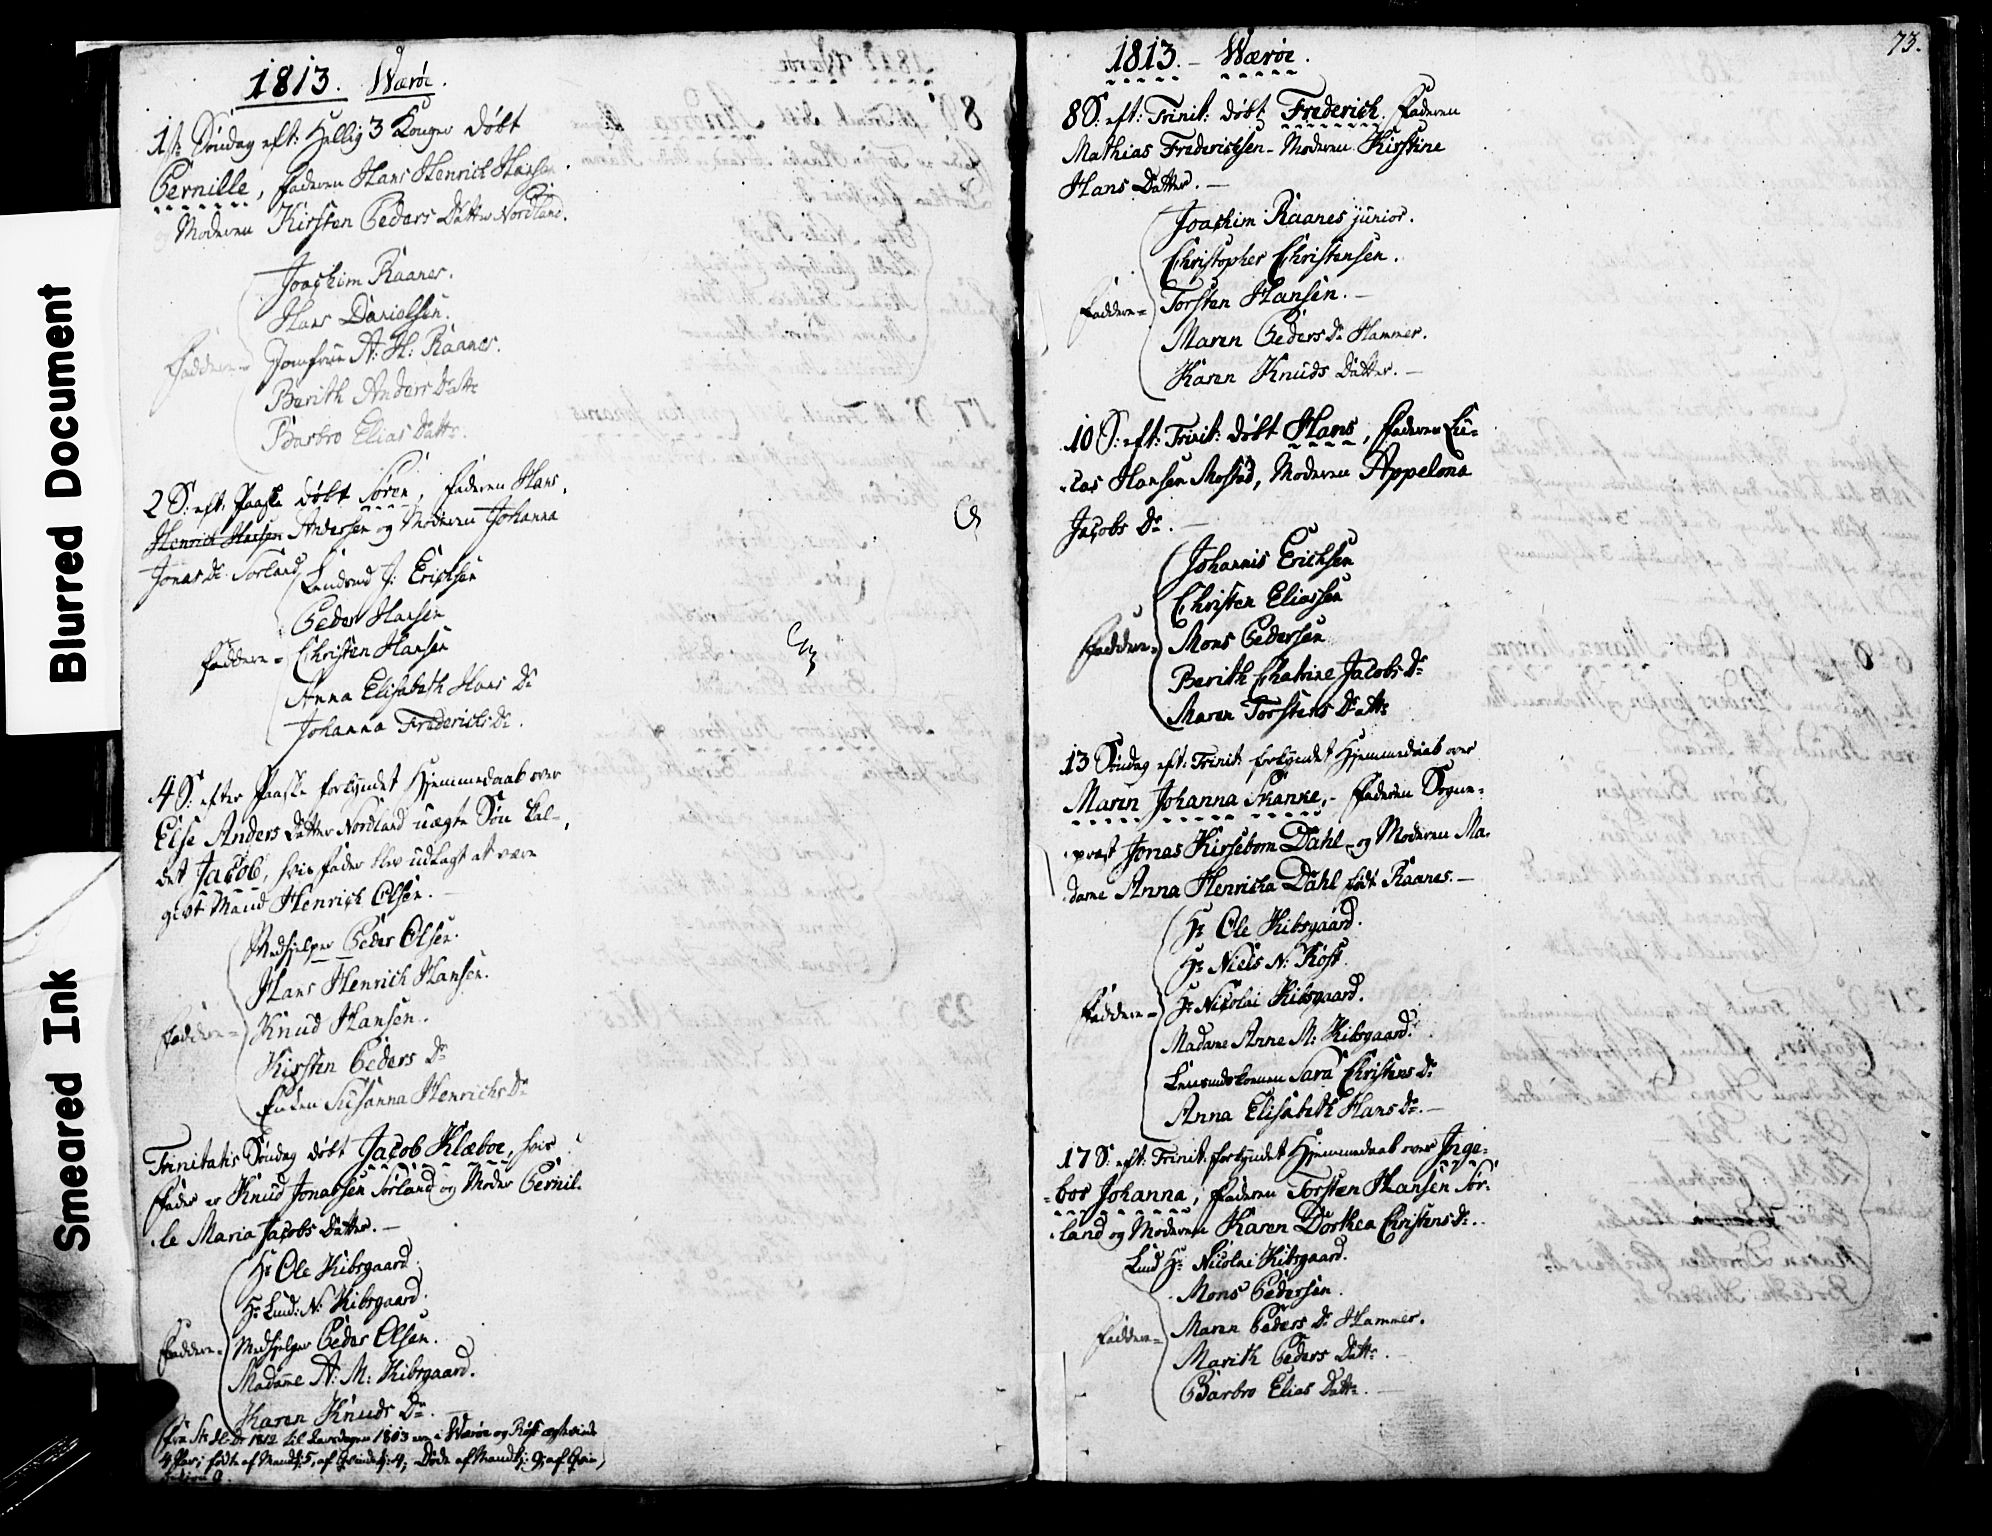 Blurred Document
Smeared Ink
1813. Wærøe.
1ste Søndag eft: Hellig 3 Konger døbt
Pernille, Faderen Hans Henrich Hansen.
Moderen Kirsten Peders Datter Nordland.
Joachim Raanes.
Hans Danielsen.
Faddere = Jomfrue A: H: Raanes.
Berith Anders Dattr
Barbro Elias Dattr.
2 S: eft: Paaske døbt Søren, Faderen Hans
Henrich Hansen Andersen og Moderen Johanna
Jonas Dr Sorland
Lendsmd J: Erichsen
Peder Hansen
Faddere = Christen Hansen
Anna Elisabeth Hans Dr
Johanna Frederichs Dr.
4 S: efter Paaske forkyndet Hjemmedaab over
Else Anders Datter Nordland uægte Søn kal-
det Jacob, hvis Fader blev udlagt at være
givt Mand Henrich Olsen.
Medhjelper Peder Olsen.
Hans Henrich Hansen.
Faddere = Knud Hansen.
Kirsten Peders Dr
Enken Susanna Henrichs Dr
Trinitatis Søndag døbt Jacob Klæboe, hvis
Fader er Knud Jonassen Sørland og Moder Pernil-
le Maria Jacobs Datter. —
Hr Ole Kibsgaard.
Hr Lud: N: Kibsgaard.
Faddere = Medhjelper Peder Olsen.
Madame A: M: Kibsgaard.
Karen Knuds Dr. —
Fra Ste H: Dr 1812 til 1813 ere i Wærøe og Røst ægteviede
4 Par; fødte af Mandkj: 5, af Qvindekj: 4; Døde af Mandkj: 9; af Qvin
73.
1813. — Wærøe.
8 S: eft: Trinit: døbt Frederich. Faderen
Mathias Frederichsen — Moderen Kirstine
Hans Datter. —
Joachim Raanes junior.
Christopher Christensen.
Faddere = Torsten Hansen. —
Maren Peders Dr Hammer.
Karen Knuds Datter. —
10 S: eft: Trinit: døbt Hans, Faderen Lu-
cas Hansen Mostad, Moderen Appelona
Jacobs Dr. —
Johannis Erichsen
Christen Eliassen
Faddere = Mons Pedersen
Berith Chatrine Jacobs Dr
Maren Torstens Dattr
13 Søndag eft: Trinit: forkyndet Hjemmedaab over
Maren Johanna Skanke, — Faderen Sogne-
præst Jonas Kirsebom Dahl og Moderen Ma-
dame Anna Henricha Dahl født Raanes. —
Hr Ole Kibsgaard.
Hr Niels N: Röst
Faddere = Hr Nicolai Kibsgaard.
Madame Anne M: Kibsgaard.
Lensmdskonen Sara Christens Dr
Anna Elisabeth Hans Dr. —
17 S: eft: Trinit: forkyndet Hjemmedaab over Inge-
bor Johanna, Faderen Torsten Hansen Sør-
land og Moderen Karen Dorthea Christens Dr.
Lud Hr Nicolai Kibsgaard.
Mons Pedersen.
Maren Peders Dr Hammer.
Faddere = Marith Peders Dattr. —
Barbro Elias Dattr. —